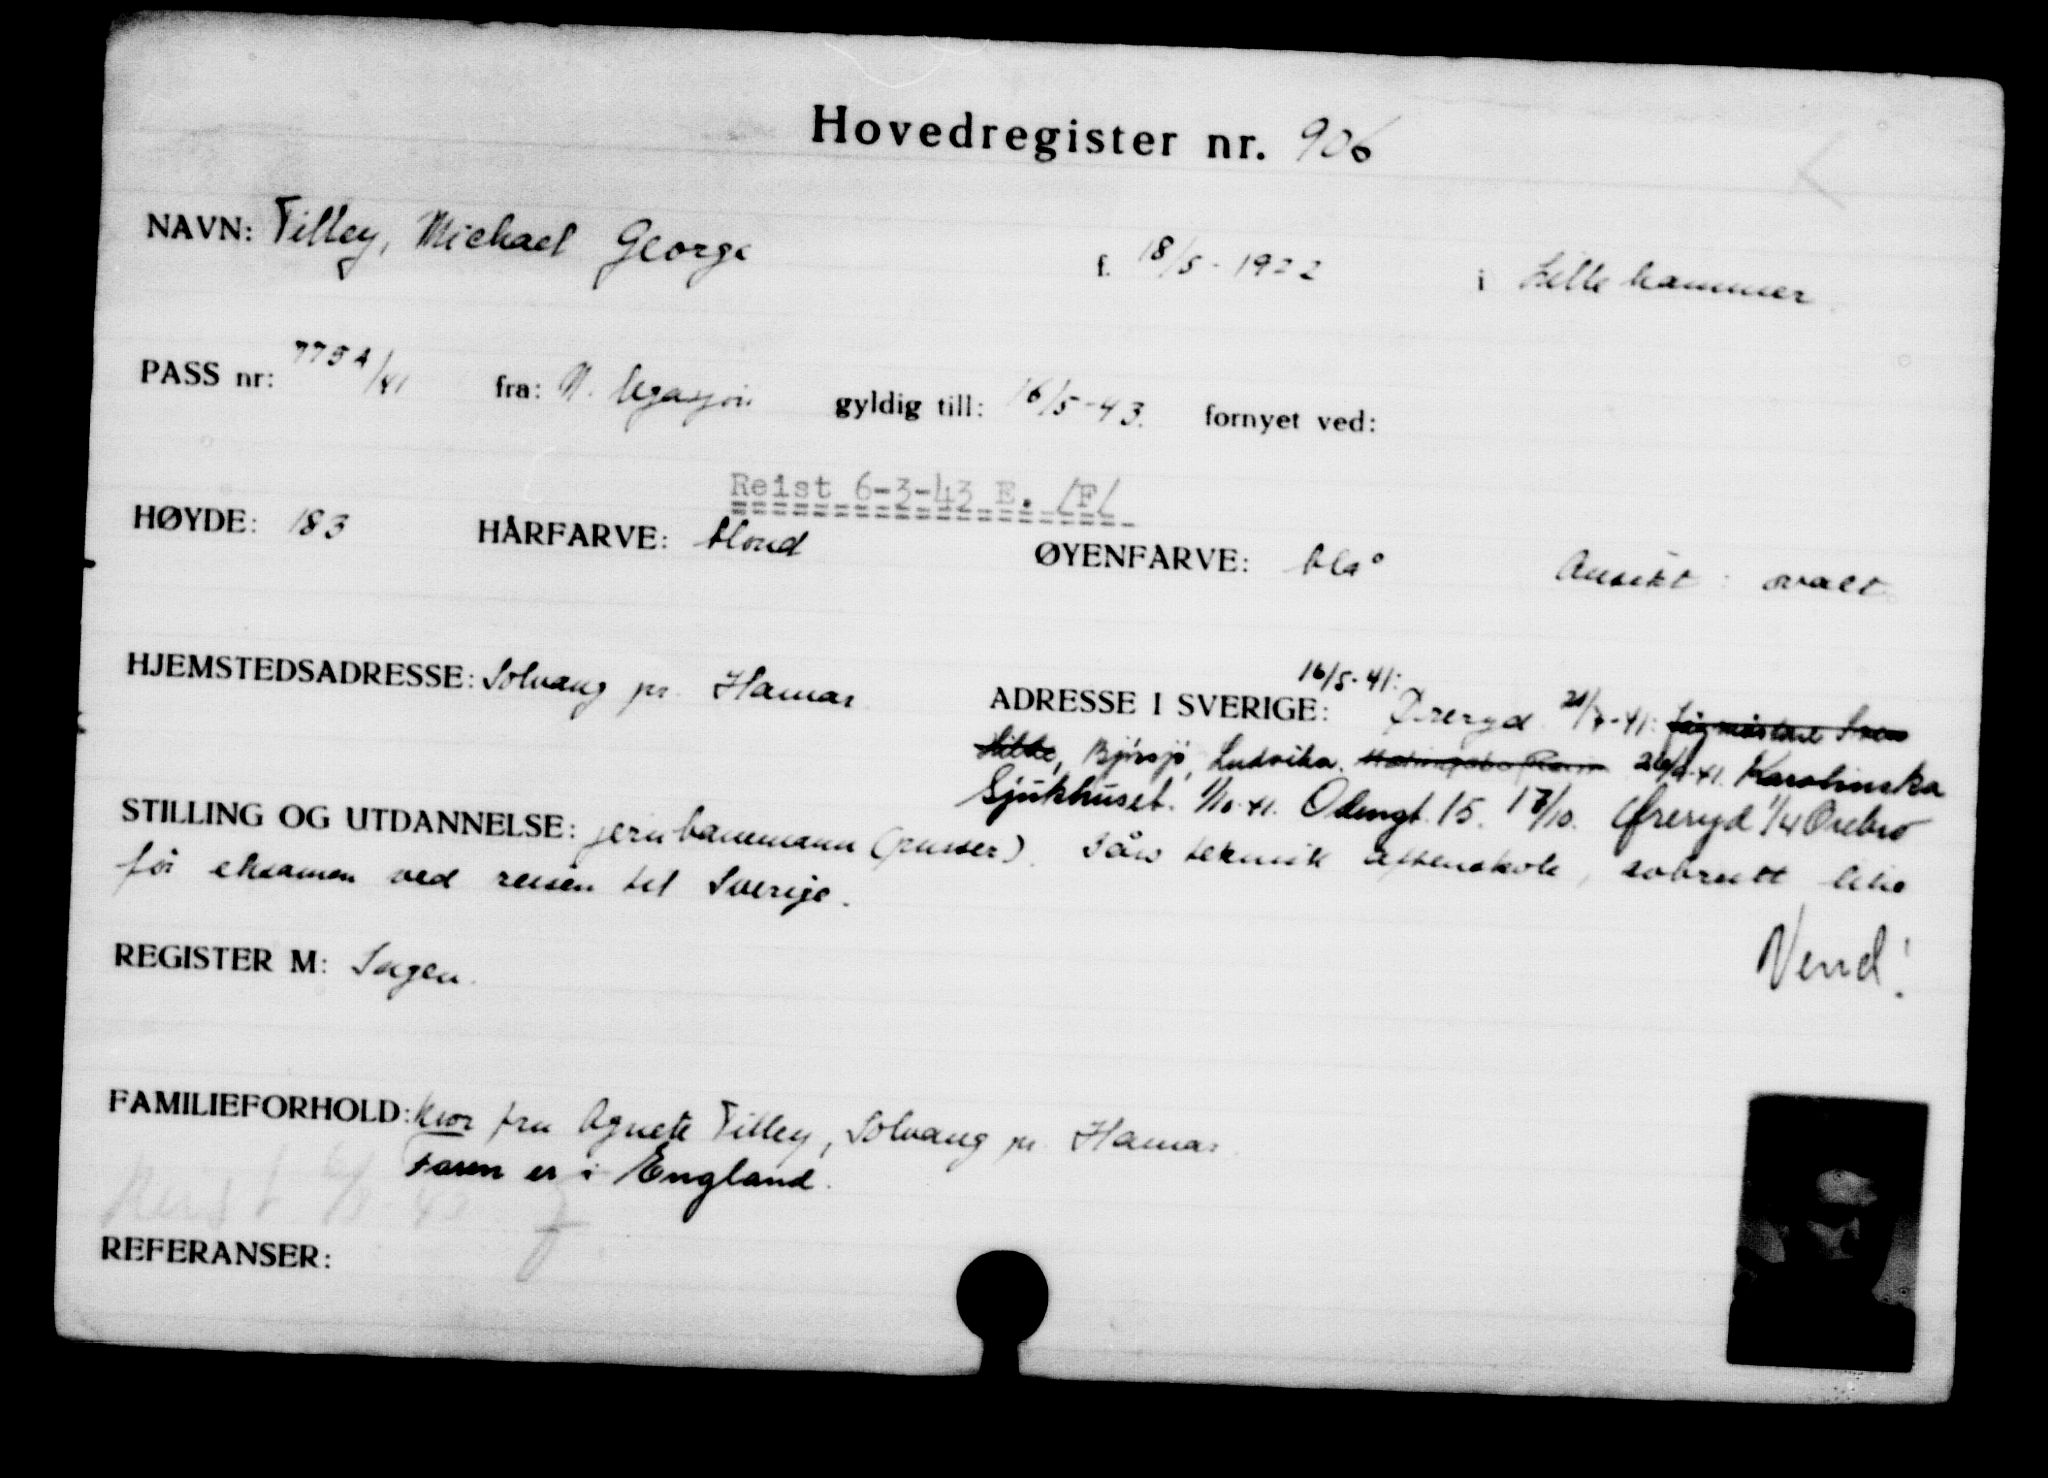 Hovedregister nr. 906
NAVN: Tilley, Michael George f. 18/5-1922 i Lillehammer
PASS nr: 775A/41 fra: N. legasjon gyldig till: 16/5-43. fornyet ved:
Reist 6-3-43 E. /F/
HØYDE: 183 HÅRFARVE: blond ØYENFARVE: blå Ansikt: ovalt
HJEMSTEDSADRESSE: Solvang pr. Hamar ADRESSE I SVERIGE: 16/5-41: Øreryd
Björsjö, Ludvika. Karolinska
Sjukhuset. 1/10-41. Odengt. 15. 17/10. Øreryd 1/4 Örebro
STILLING OG UTDANNELSE: jernbanemann (pusser). teknisk aftenskole, avbrutt like
før eksamen ved reisen til Sverige.
Vend!
REGISTER M: Ingen.
FAMILIEFORHOLD: Mor fru Agnete Tilley, Solvang pr. Hamar.
Faren er i England.
Reist 6/3-43 F
REFERANSER: